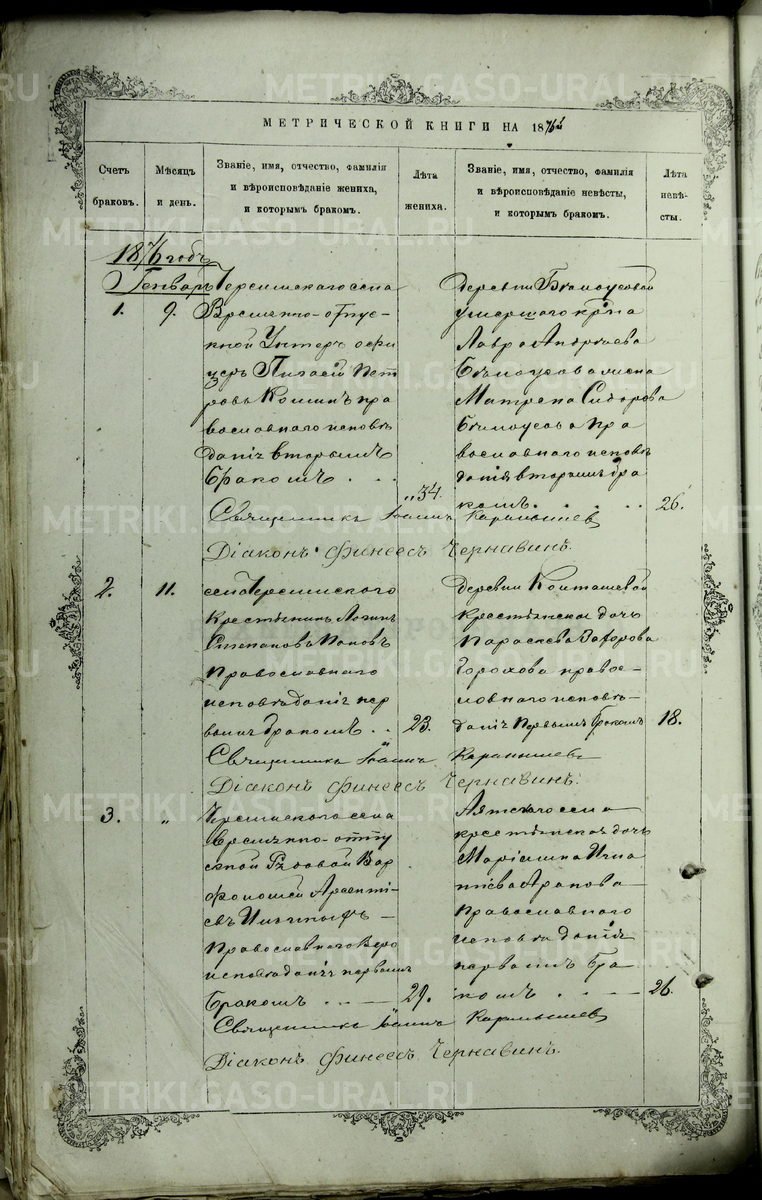 МЕТРИЧЕСКОЙ КНИГИ НА 1876й
Счетъ браковъ.
Мѣсяцъ и день.
Званіе, имя, отчество, фамилія
и вѣроисповѣданіе жениха,
и которымъ бракомъ.
Лѣта жениха.
Званіе, имя, отчество, фамилія
и вѣроисповѣданіе невѣсты,
и которымъ бракомъ.
Лѣта невѣсты.
1876 годъ
Генварь
1. 9.
села
Временно-отпус-
кной Унтеръ офи
церъ Пет
ровъ пра
вославнаго исповѣ
данія вторымъ
бракомъ . . .
34.
Деревни Бѣлоусовой
умершаго кр-на
Лавра Андреева
Бѣлоусова жена
Матрена Сидорова
Бѣлоусова пра
вославнаго исповѣ
данія вторымъ бра
комъ. . . . .
26.
Священникъ Іоаннъ Карамышевъ
Діаконъ Финеесъ Чернавинъ.
2. 11.
села
Крестьянинъ Логинъ
Степановъ Поповъ
Православнаго
исповѣданія пер
вымъ бракомъ . .
23.
Деревни
крестьянская дочь
Параскева
Горохова правос-
лавнаго исповѣ-
данія первымъ бракомъ
18.
Священникъ Іоаннъ Карамышевъ
Діаконъ Финеесъ Чернавинъ.
3. "
села
Временно-отпу
скной Рядовой Вар
фоломей Арсенті-
евъ
Православнаго Веро
исповѣданія первымъ
бракомъ . . —
29.
Аятскаго села
крестьянская дочь
Маріамна Игна
тіева Арапова
Православнаго
исповѣданія
первымъ бра
комъ . . . —
26.
Священникъ Іоаннъ Карамышевъ
Діаконъ Финеесъ Чернавинъ.
METRIKI.GASO-URAL.RU